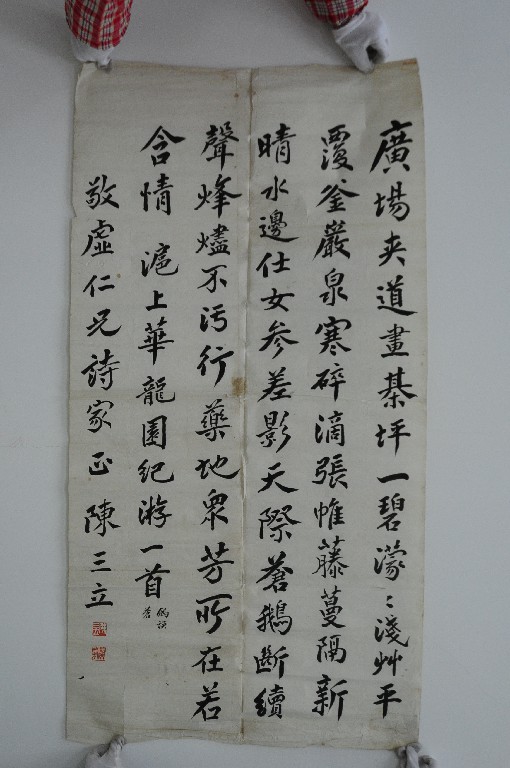 廣場夾道畫棊坪一碧濛〻淺艸平
覆釜巖泉寒碎滴張帷藤蔓隔新
晴水邊仕女參差影天際蒼鵝斷續
聲烽燼不污行藥地眾芳所在若
含情 滬上華龍園紀游一首
敬虛仁兄詩家正 陳三立